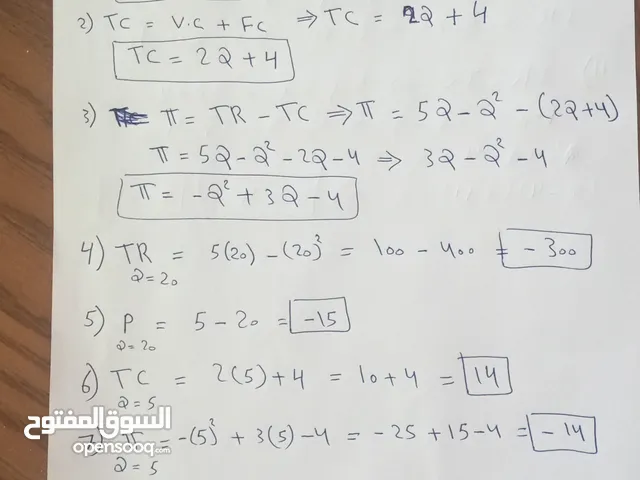 2) TC = V.C + FC ⇒ TC = 2Q + 4
TC = 2Q + 4
3) π = TR - TC ⇒ π = 5Q - Q² - (2Q+4)
π = 5Q - Q² - 2Q - 4 ⇒ 3Q - Q² - 4
π = -Q² + 3Q - 4
4) TR = 5(20) - (20)² = 100 - 400 = -300
Q=20
5) P = 5 - 20 = -15
Q=20
6) TC = 2(5) + 4 = 10 + 4 = 14
Q=5
7) π = -(5)² + 3(5) - 4 = -25 + 15 - 4 = -14
Q=5
السوق المفتوح
opensooq.com